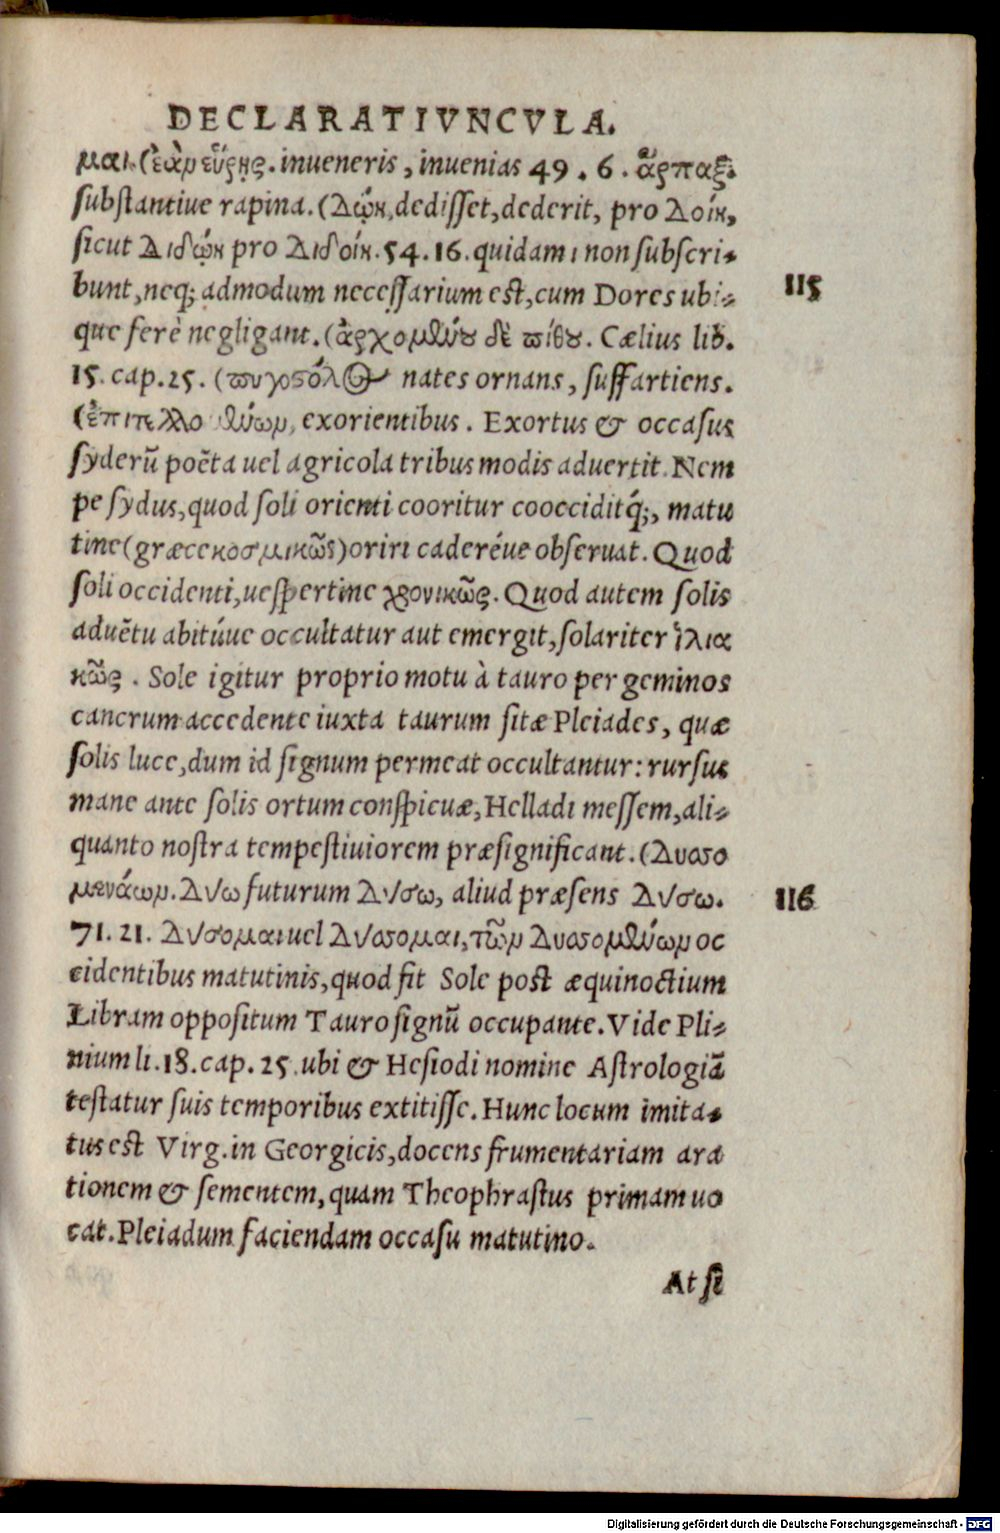 DECLARATIVNCVLA.
μαι. (ἐὰν εὕρῃς. inueneris, inuenias 49. 6. ἅρπαξ.
substantiue rapina. (Δῴη, dedisset, dederit, pro Δοίη,
sicut Διδῴη pro Διδοίη. 54. 16. quidam ι non subscri-
bunt, neq; admodum necessarium est, cum Dores ubi- 115
que ferè negligant. (ἀρχομένου δὲ πίθου. Cælius lib.
15. cap. 25. (πυγοστόλος nates ornans, suffartiens.
(ἐπιτελλομένάων, exorientibus. Exortus & occasus
syderū poëta uel agricola tribus modis aduertit. Nem
pe sydus, quod soli orienti cooritur coocciditq́;, matu
tine (græce κοσμικῶς) oriri caderéue obseruat. Quod
soli occidenti, uespertine χρονικῶς. Quod autem solis
aduētu abitúue occultatur aut emergit, solariter ἡλια
κῶς. Sole igitur proprio motu à tauro per geminos
cancrum accedente iuxta taurum sitæ Pleiades, quæ
solis luce, dum id signum permeat occultantur: rursus
mane ante solis ortum conspicuæ, Helladi messem, ali-
quanto nostra tempestiuiorem præsignificant. (Δυσο
μενάων. Δύω futurum Δύσω, aliud præsens Δύσω. 116
71. 21. Δύσομαι uel Δύσομαι, τῶν Δυσομένων oc
cidentibus matutinis, quod fit Sole post æquinoctium
Libram oppositum Tauro signū occupante. Vide Pli-
nium li. 18. cap. 25. ubi & Hesiodi nomine Astrologiā
testatur suis temporibus extitisse. Hunc locum imita-
tus est Virg. in Georgicis, docens frumentariam ara
tionem & sementem, quam Theophrastus primam uo
cat. Pleiadum faciendam occasu matutino.
At si
Digitalisierung gefördert durch die Deutsche Forschungsgemeinschaft - DFG